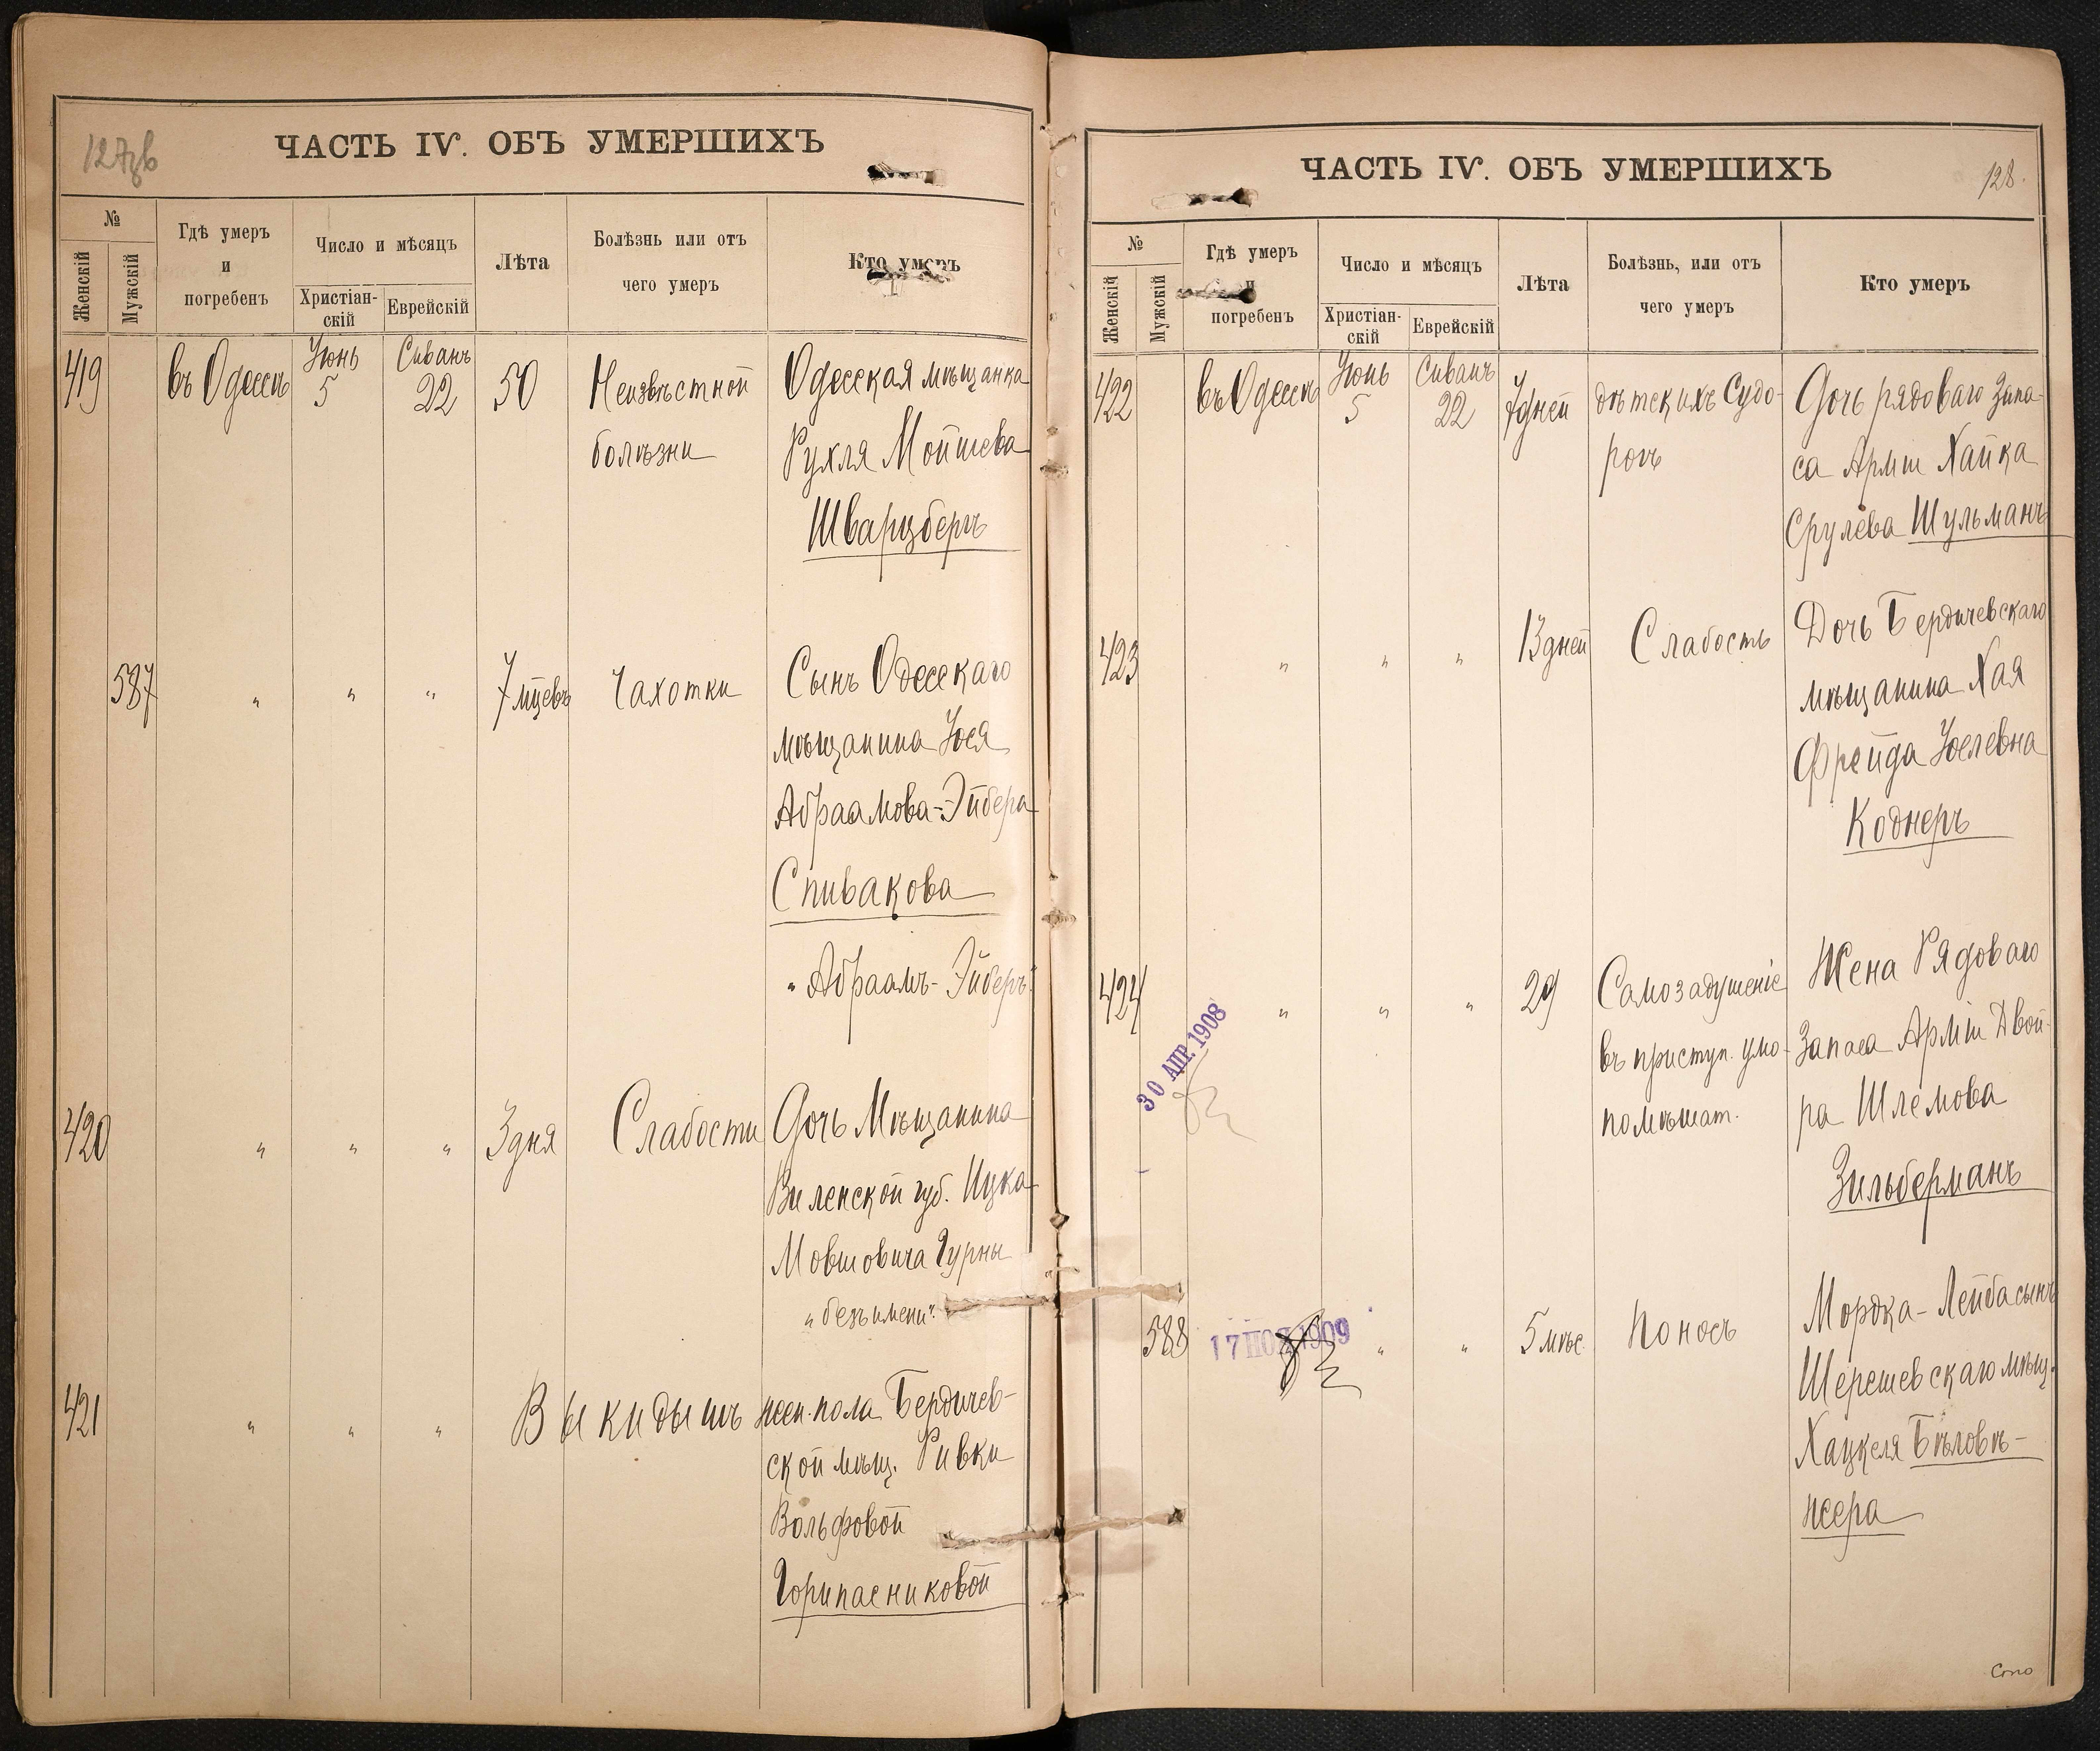 127об
ЧАСТЬ IV. ОБЪ УМЕРШИХЪ
№
Женскій
Мужскій
Гдѣ умеръ
и
погребенъ
Число и мѣсяцъ
Христіан-
скій
Еврейскій
Лѣта
Болѣзнь или отъ
чего умеръ
Кто умеръ
419 въ Одессѣ Іюнь 5 Сиванъ 22 50 Неизвѣстной Одесская мѣщанка
болѣзни Рухля Мойшева
Шварцбергъ
587 " " " 7 мцевъ Чахотки Сынъ Одесскаго
мѣщанина Іося
Абраамова-Эйбера
Спивакова
"Абраамъ-Эйберъ"
420 " " " 3 дня Слабости Дочь Мѣщанина
Виленской губ. Ицка
Мовшовича Гурны
"безъ имени".
421 " " " Выкидышъ жен. пола Бердичев-
ской мѣщ. Ривки
Вольфовой
Горипасниковой
ЧАСТЬ IV. ОБЪ УМЕРШИХЪ
128.
№
Женскій
Мужскій
Гдѣ умеръ
и
погребенъ
Число и мѣсяцъ
Христіан-
скій
Еврейскій
Лѣта
Болѣзнь, или отъ
чего умеръ
Кто умеръ
422 въ Одессѣ Іюнь 5 Сиванъ 22 7 дней дѣтскихъ Судо- Дочь рядоваго Запа-
рогъ са Арміи Хайка
Срулева Шульманъ
423 " " " 13 дней Слабость Дочь Бердичевскаго
мѣщанина Хая
Фрейда Іоселевна
Коднеръ
424 " " " 29 Самозадушеніе Жена Рядоваго
въ приступ. умо- Запаса Арміи Двой-
помѣшат. ра Шлемова
Зильберманъ
30 АПР. 1908
588 17 НОЯ 1909 " " 5 мѣс. Поносъ Мордка-Лейба сынъ
Шерешевскаго мѣщ.
Хацкеля Бѣловѣ-
жера